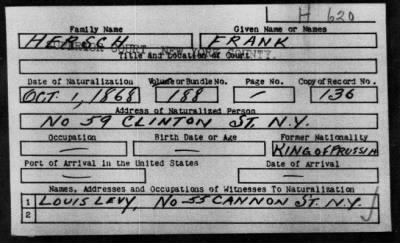 H 620
Family Name Given Name or Names
HERSCH FRANK
SUPERIOR COURT, NEW YORK COUNTY.
Title and Location of Court
Date of Naturalization Volume or Bundle No. Page No. Copy of Record No.
OCT. 1, 1868 188 — 136
Address of Naturalized Person
NO 59 CLINTON ST. N.Y.
Occupation Birth Date or Age Former Nationality
— — KING OF PRUSSIA
Port of Arrival in the United States Date of Arrival
— —
Names, Addresses and Occupations of Witnesses To Naturalization
1 LOUIS LEVY, NO 55 CANNON ST. N.Y.
2